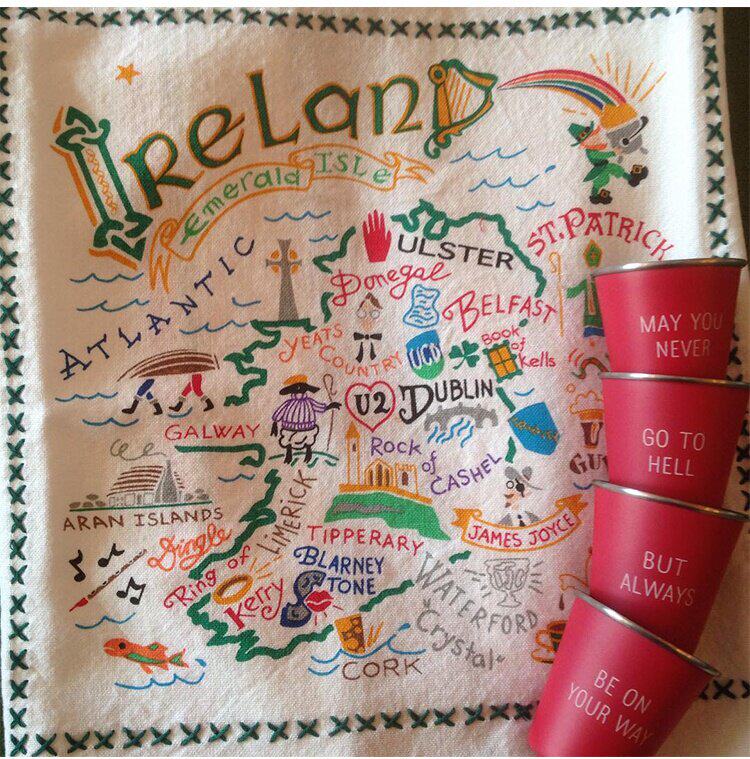 IRELAND
Emerald ISLE
ATLANTIC
ULSTER
ST. PATRICK
Donegal
BELFAST
YEATS
COUNTRY
UCD
BOOK
of
Kells
U2
DUBLIN
GALWAY
ROCK
of
CASHEL
LIMERICK
ARAN ISLANDS
TIPPERARY
JAMES JOYCE
Dingle
Ring of
Kerry
BLARNEY
TONE
WATERFORD
"Crystal"
CORK
MAY YOU
NEVER
GO TO
HELL
BUT
ALWAYS
BE ON
YOUR WAY